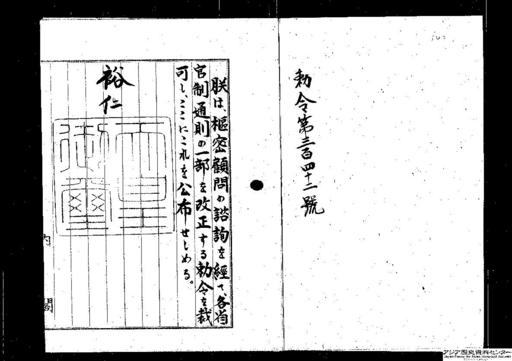 勅令第三百四十二號
朕は、樞密顧問の諮詢を經て各省
官制通則の一部を改正する勅令を裁
可し、ここにこれを公布せしめる。
裕仁
天皇御璽
内閣
アジア歴史資料センター